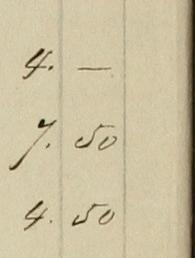 4. —
7. 50
4. 50